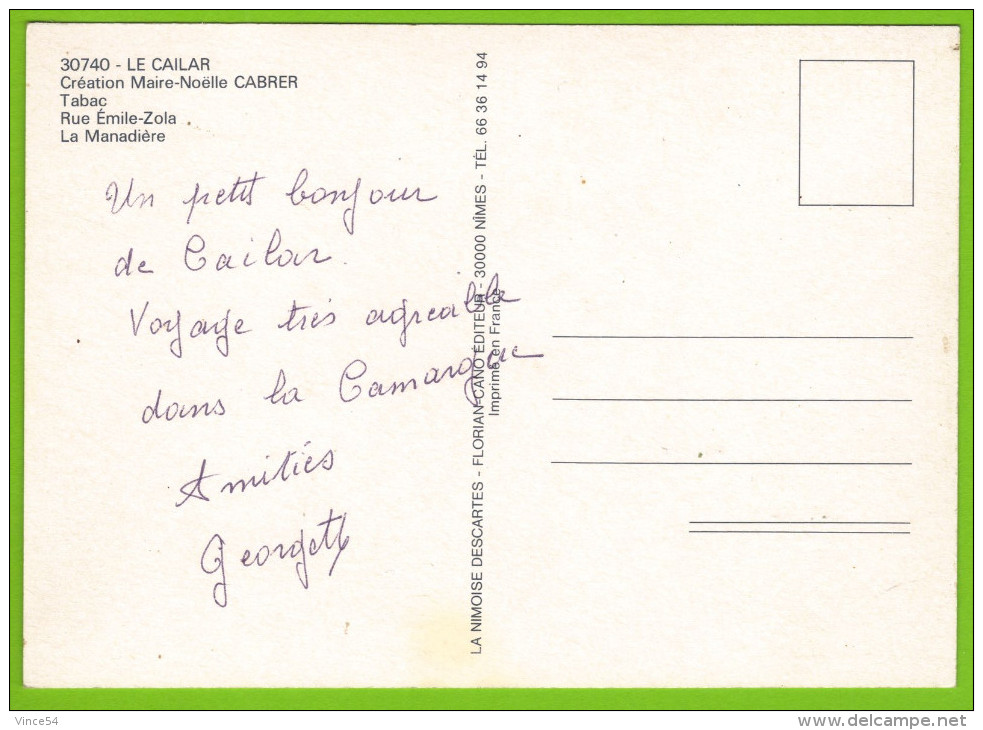 30740 - LE CAILAR
Création Maire-Noëlle CABRER
Tabac
Rue Émile-Zola
La Manadière
Un petit bonjour
de Cailar.
Voyage très agréable
dans la Camargue
Amitiés
Georgette
LA NIMOISE DESCARTES - FLORIAN-CANO ÉDITEUR - 30000 NÎMES - TÉL. 66 36 14 94
Imprimé en France
Vince54
www.delcampe.net